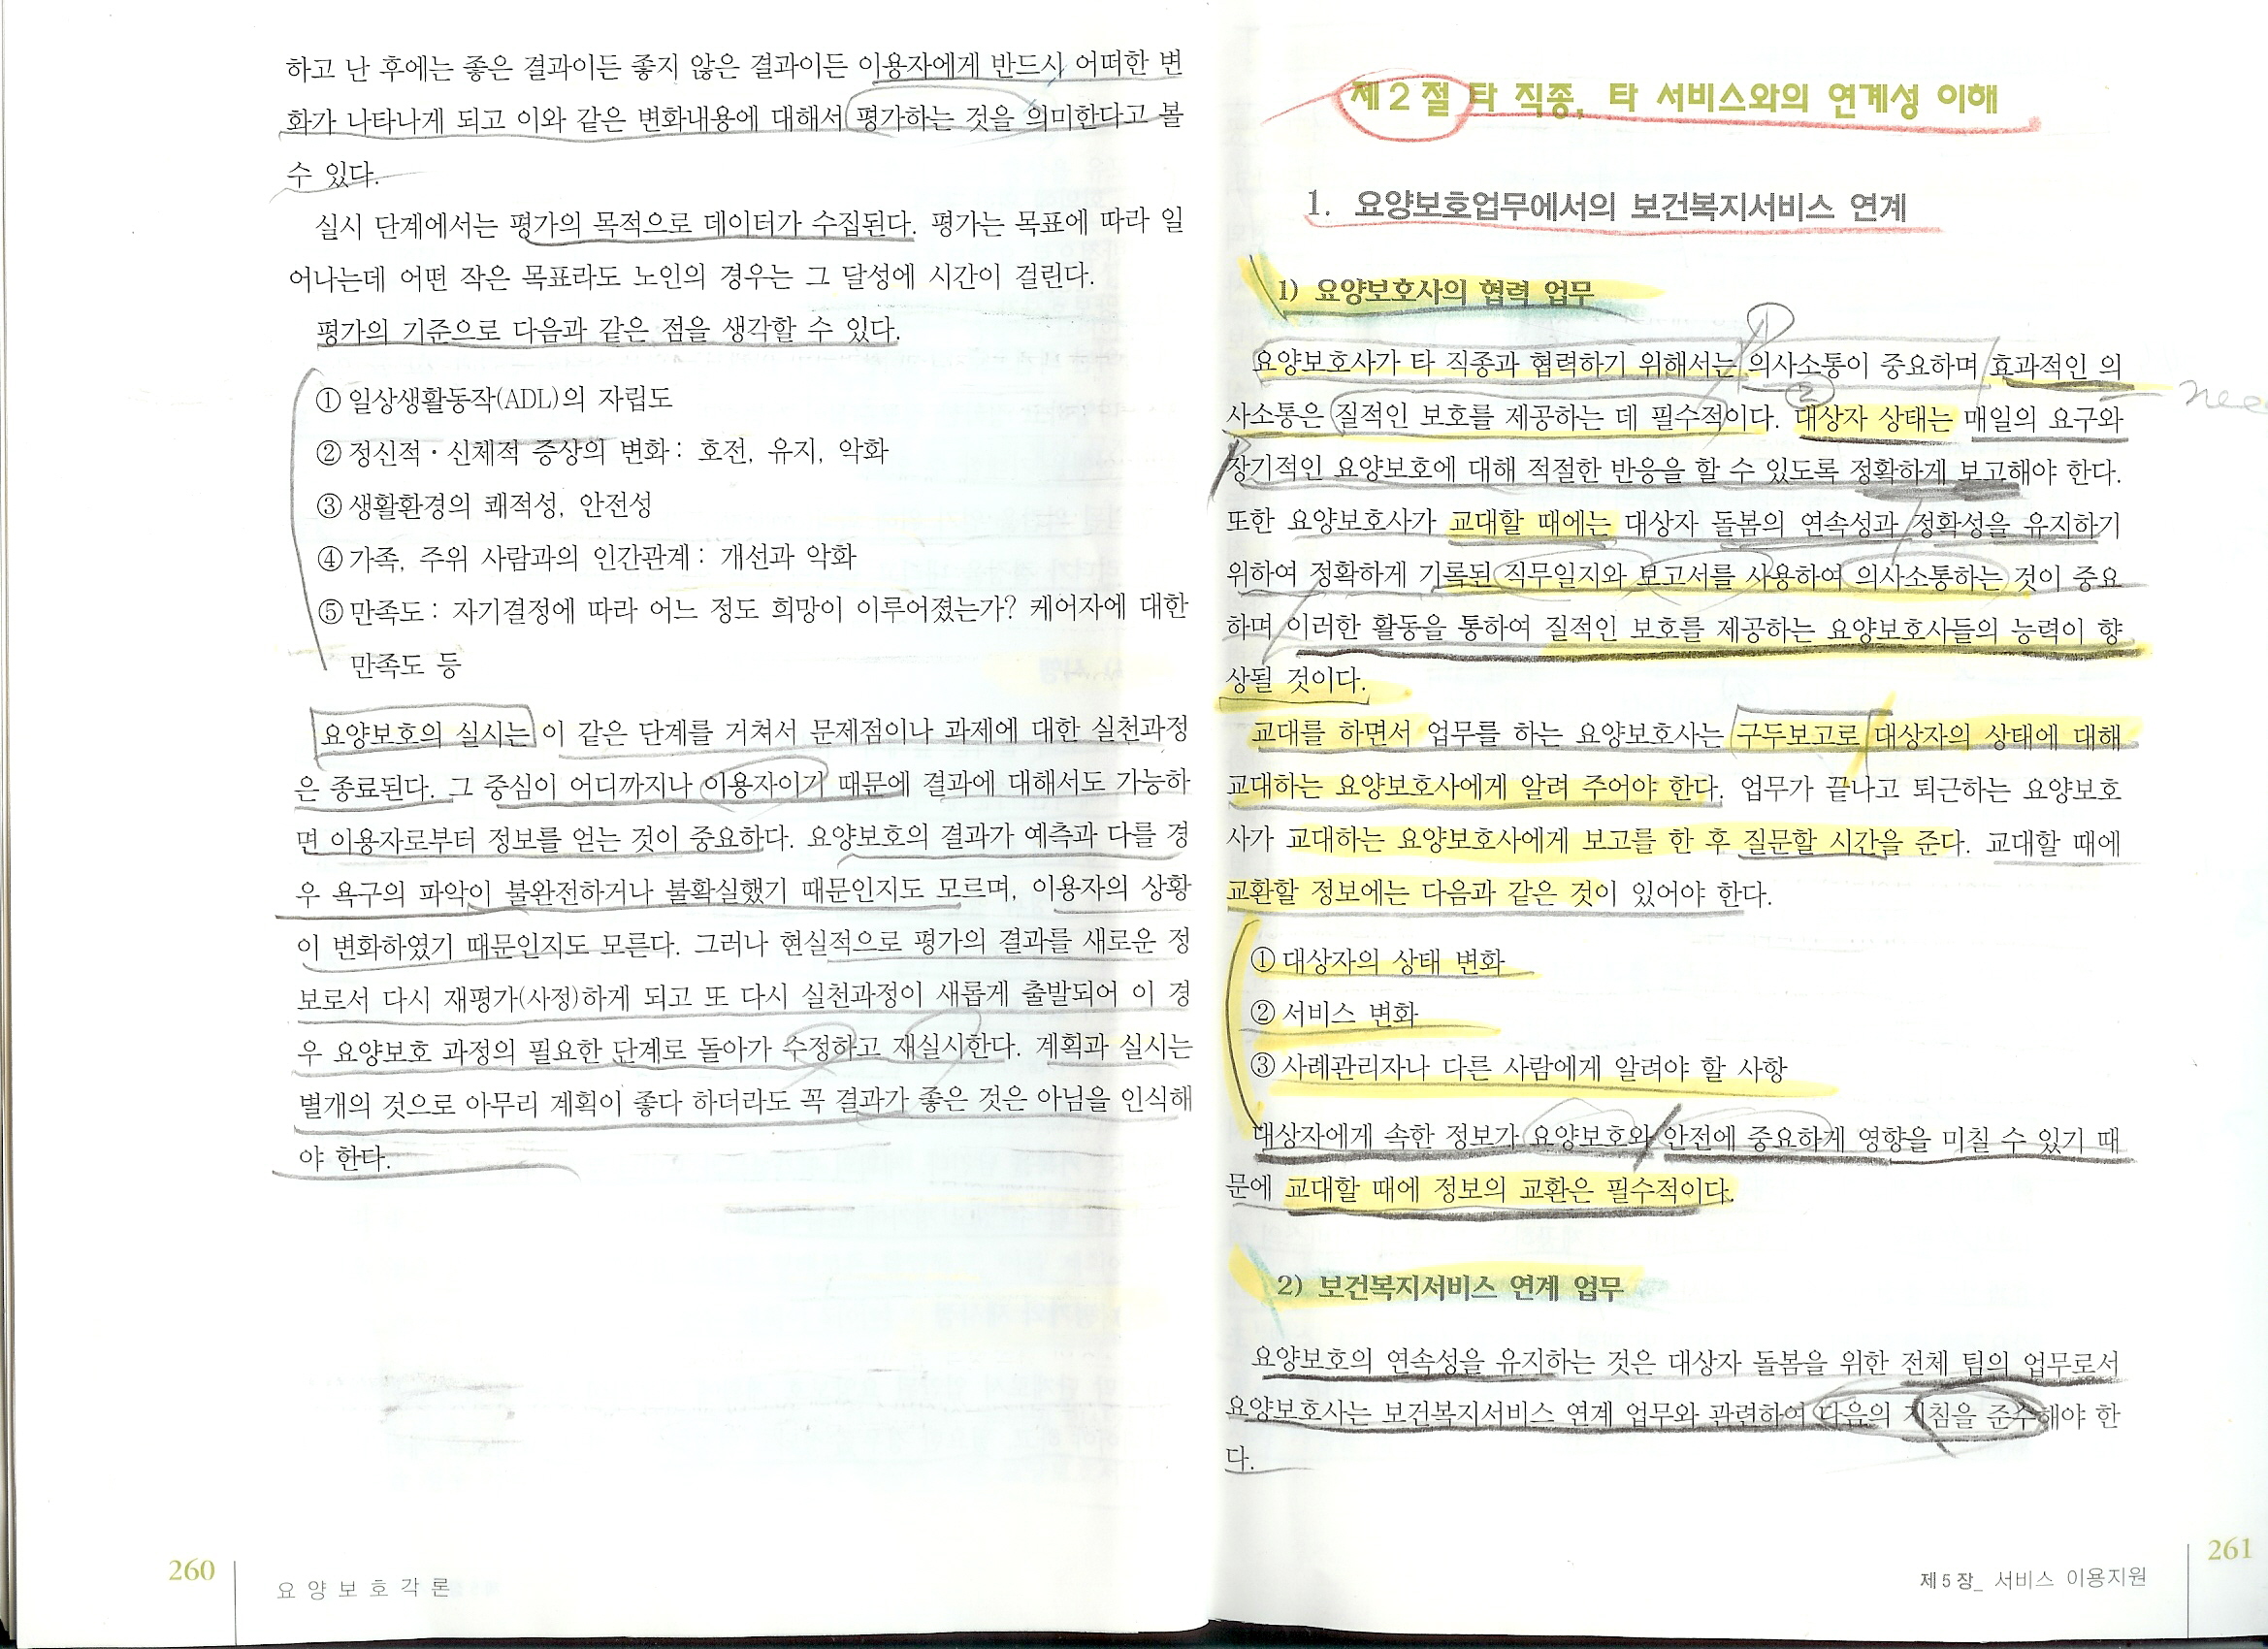 하고 난 후에는 좋은 결과이든 좋지 않은 결과이든 이용자에게 반드시 어떠한 변
화가 나타나게 되고 이와 같은 변화내용에 대해서 평가하는 것을 의미한다고 볼
수 있다.
실시 단계에서는 평가의 목적으로 데이터가 수집된다. 평가는 목표에 따라 일
어나는데 어떤 작은 목표라도 노인의 경우는 그 달성에 시간이 걸린다.
평가의 기준으로 다음과 같은 점을 생각할 수 있다.
① 일상생활동작(ADL)의 자립도
② 정신적·신체적 증상의 변화 : 호전, 유지, 악화
③ 생활환경의 쾌적성, 안전성
④ 가족, 주위 사람과의 인간관계 : 개선과 악화
⑤ 만족도 : 자기결정에 따라 어느 정도 희망이 이루어졌는가? 케어자에 대한
만족도 등
요양보호의 실시는 이 같은 단계를 거쳐서 문제점이나 과제에 대한 실천과정
은 종료된다. 그 중심이 어디까지나 이용자이기 때문에 결과에 대해서도 가능하
면 이용자로부터 정보를 얻는 것이 중요하다. 요양보호의 결과가 예측과 다를 경
우 욕구의 파악이 불완전하거나 불확실했기 때문인지도 모르며, 이용자의 상황
이 변화하였기 때문인지도 모른다. 그러나 현실적으로 평가의 결과를 새로운 정
보로서 다시 재평가(사정)하게 되고 또 다시 실천과정이 새롭게 출발되어 이 경
우 요양보호 과정의 필요한 단계로 돌아가 수정하고 재실시한다. 계획과 실시는
별개의 것으로 아무리 계획이 좋다 하더라도 꼭 결과가 좋은 것은 아님을 인식해
야 한다.
260
요양보호각론
제2절 타 직종, 타 서비스와의 연계성 이해
1. 요양보호업무에서의 보건복지서비스 연계
1) 요양보호사의 협력 업무
①
요양보호사가 타 직종과 협력하기 위해서는 의사소통이 중요하며 효과적인 의
②
사소통은 질적인 보호를 제공하는 데 필수적이다. 대상자 상태는 매일의 요구와
장기적인 요양보호에 대해 적절한 반응을 할 수 있도록 정확하게 보고해야 한다.
또한 요양보호사가 교대할 때에는 대상자 돌봄의 연속성과 정확성을 유지하기
위하여 정확하게 기록된 직무일지와 보고서를 사용하여 의사소통하는 것이 중요
하며 이러한 활동을 통하여 질적인 보호를 제공하는 요양보호사들의 능력이 향
상될 것이다.
교대를 하면서 업무를 하는 요양보호사는 구두보고로 대상자의 상태에 대해
교대하는 요양보호사에게 알려 주어야 한다. 업무가 끝나고 퇴근하는 요양보호
사가 교대하는 요양보호사에게 보고를 한 후 질문할 시간을 준다. 교대할 때에
교환할 정보에는 다음과 같은 것이 있어야 한다.
① 대상자의 상태 변화
② 서비스 변화
③ 사례관리자나 다른 사람에게 알려야 할 사항
대상자에게 속한 정보가 요양보호와 안전에 중요하게 영향을 미칠 수 있기 때
문에 교대할 때에 정보의 교환은 필수적이다.
2) 보건복지서비스 연계 업무
요양보호의 연속성을 유지하는 것은 대상자 돌봄을 위한 전체 팀의 업무로서
요양보호사는 보건복지서비스 연계 업무와 관련하여 다음의 지침을 준수해야 한
다.
제5장_ 서비스 이용지원
261